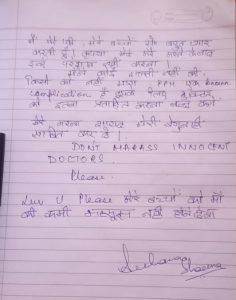 मैं मेरे पति, मेरे बच्चों से बहुत प्यार
करती हूं। कृपया मेरे मरने के बाद
इन्हें परेशान नहीं करना।
मैंने कोई गलती नहीं की
किसी को नहीं मारा PPH is a known
complication है इसके लिए डॉक्टर
को इतना प्रताड़ित करना बन्द करो
मेरा मरना शायद मेरी बेगुनाही
साबित कर दे।
DONT HARASS INNOCENT
DOCTORS.
Please.
Luv U Please मेरे बच्चों को माँ
की कमी महसूस नहीं होने देना
Archana
Sharma